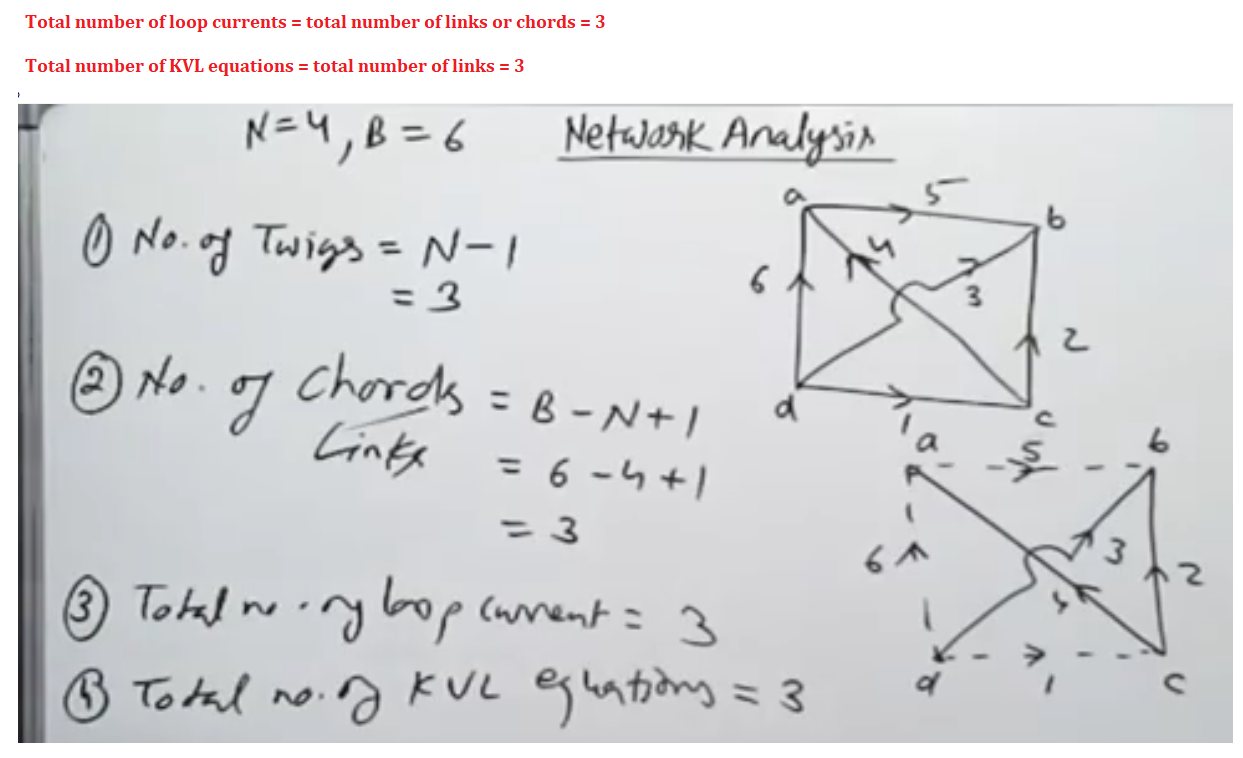 Total number of loop currents = total number of links or chords = 3
Total number of KVL equations = total number of links = 3
N=4, B=6 Network Analysis
① No. of Twigs = N-1
= 3
② No. of Chords = B-N+1
Links = 6-4+1
= 3
③ Total no. of loop current = 3
④ Total no. of KVL equations = 3
a 5 b
6 4 3 2
d 1 c
a 5 b
6 3 2
4
d 1 c